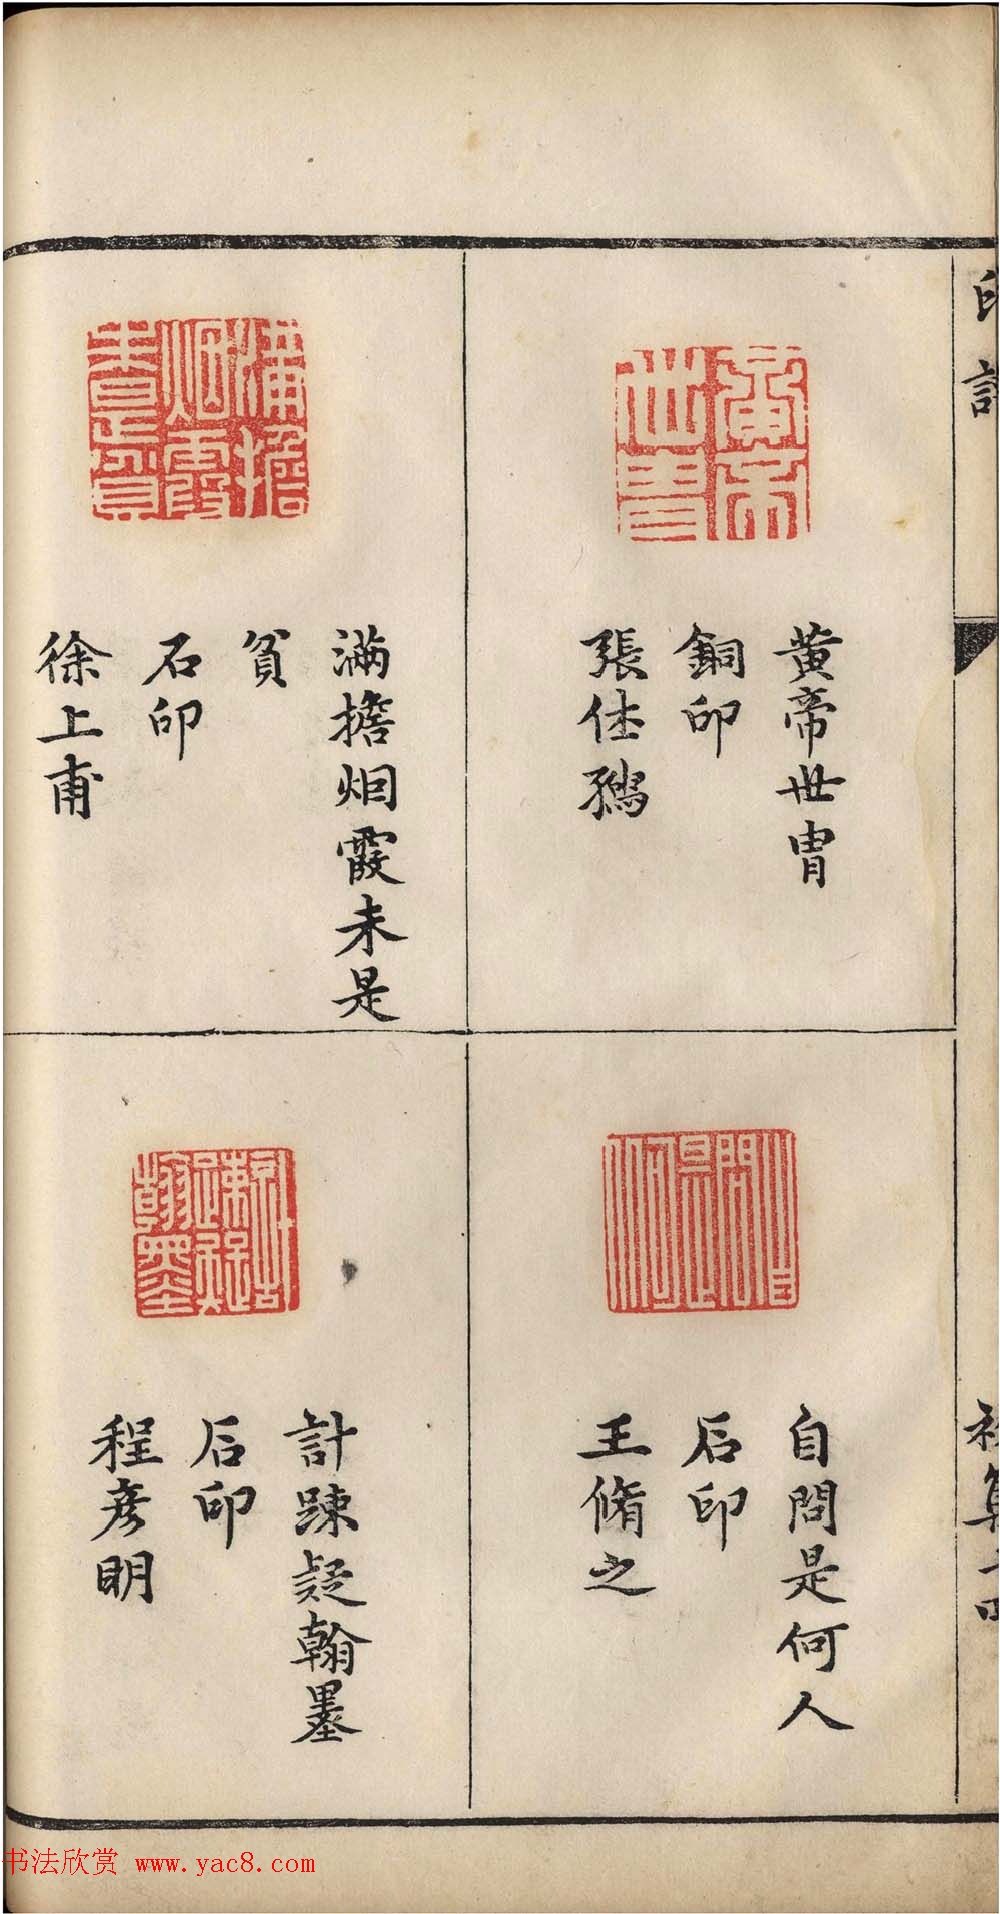 黄帝世冑
銅印
張仕
滿擔烟霞未是
貧
石印
徐上甫
自問是何人
石印
王脩之
計踈疑翰墨
石印
程彦明
书法欣赏 www.yac8.com